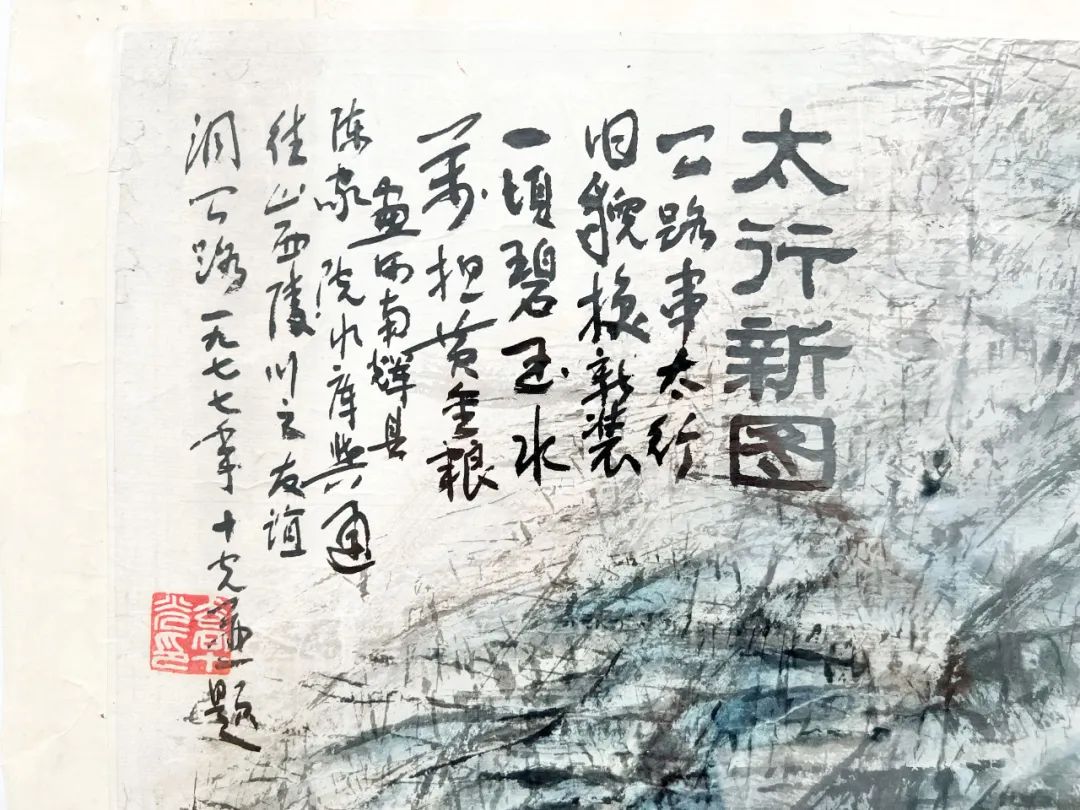 太行新图
公路串太行
旧貌换新装
一顷碧玉水
萬担黄金粮
画河南辉县
陈家院水库與通
往山西陵川之友谊
洞公路一九七七年十光题